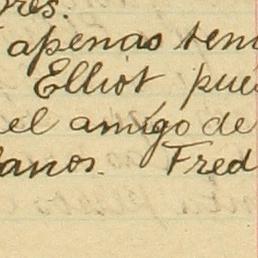 res.
apenas ten
Elliot pue
el amigo de
anos. Fred